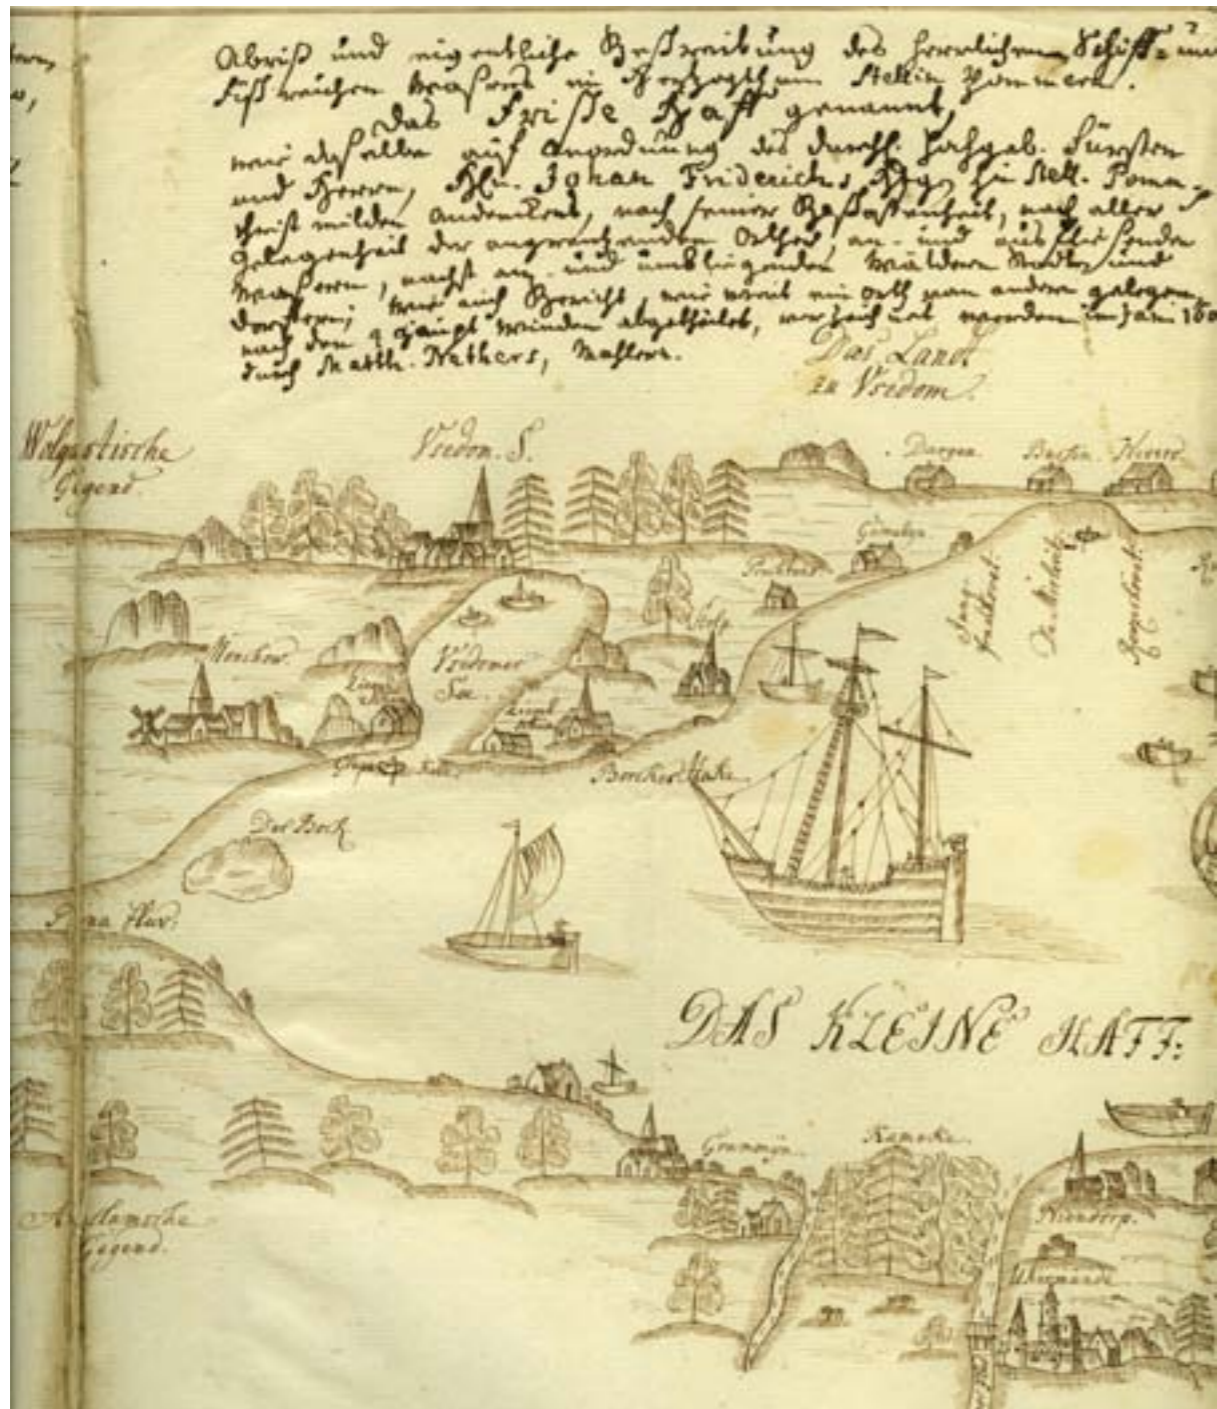 Abriß und eigentliche Beschreibung des herrlichen Schiff- und
fischreichen Waßers im Herzogthum Stettin Pommern.
Das Frische Haff genannt,
wie daßelbe auf Anordnung des durchl. Hochgeb. Fürsten
und Herrn, Hn. Johan Friderichs, Hzg. zu Stett. Pomm.
Christ milden Andenckens, nach seiner Beschaffenheit, nach aller
Gelegenheit der angrentzenden Örther, an- und ausfließenden
Waßern, nächst an- und umbliegenden Wäldern Städte und
Dörffern, wie auch Bericht, wie weit ein orth vom andern gelegen,
nach den 4 Haupt Winden abgetheilet, verzeichnet worden im Jahr 160
durch Matth. Nethers, Mahlern.
Das Land
zu Vsedom.
Wolgastische
Gegend.
Vsedom. S.
Dargen.
Bussin.
Monchow.
Stolp
Vsedomer
See.
Borcker Hake
Der Bock
Pena Fluv.
DAS KLEINE HAFF:
Grammijn.
Kamicke.
Anclamsche
Gegend.
Niendorp.
Ukermunde